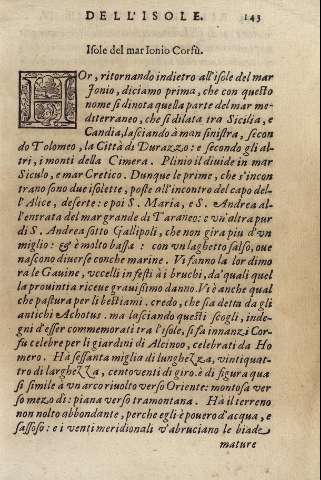 DELL'ISOLE. 143
Isole del mar Ionio Corfù.
HOr, ritornando indietro all'isole del mar
Jonio, diciamo prima, che con questo
nome si dinota quella parte del mar me-
diterraneo, che si dilata tra Sicilia, e
Candia, lasciando à man sinistra, secon
do Tolomeo, la Città di Durazzo: e secondo gli al-
tri, i monti della Cimera. Plinio il diuide in mar
Siculo, e mar Cretico. Dunque le prime, che s'incon
trano sono due isolette, poste all'incontro del capo del-
l'Alice, deserte: e poi S. Maria, e S. Andrea al-
l'entrata del mar grande di Taranto: e vn'altra pur
di S. Andrea sotto Gallipoli, che non gira piu d'vn
miglio: & è molto bassa: con vn laghetto salso, oue
nascono diuerse conche marine. Vi fanno la lor dimo
ra le Gauine, vccelli infesti à i bruchi, da' quali quel
la prouintia riceue grauissimo danno. Vi è anche qual
che pastura per li bestiami. credo, che sia detta da gli
antichi Achotus. ma lasciando questi scogli, inde-
gni d'esser commemorati tra l'isole, si fa innanzi Cor-
fu celebre per li giardini di Alcinoo, celebrati da Ho
mero. Hà sessanta miglia di lunghezza, vintiquat-
tro di larghezza, centoventi di giro. è di figura qua
si simile à vn arco riuolto verso Oriente: montosa ver
so mezo dì: piana verso tramontana. Hà il terreno
non molto abbondante, perche egli è pouero d'acqua, e
sassoso: e i venti meridionali v'abruciano le biade
mature